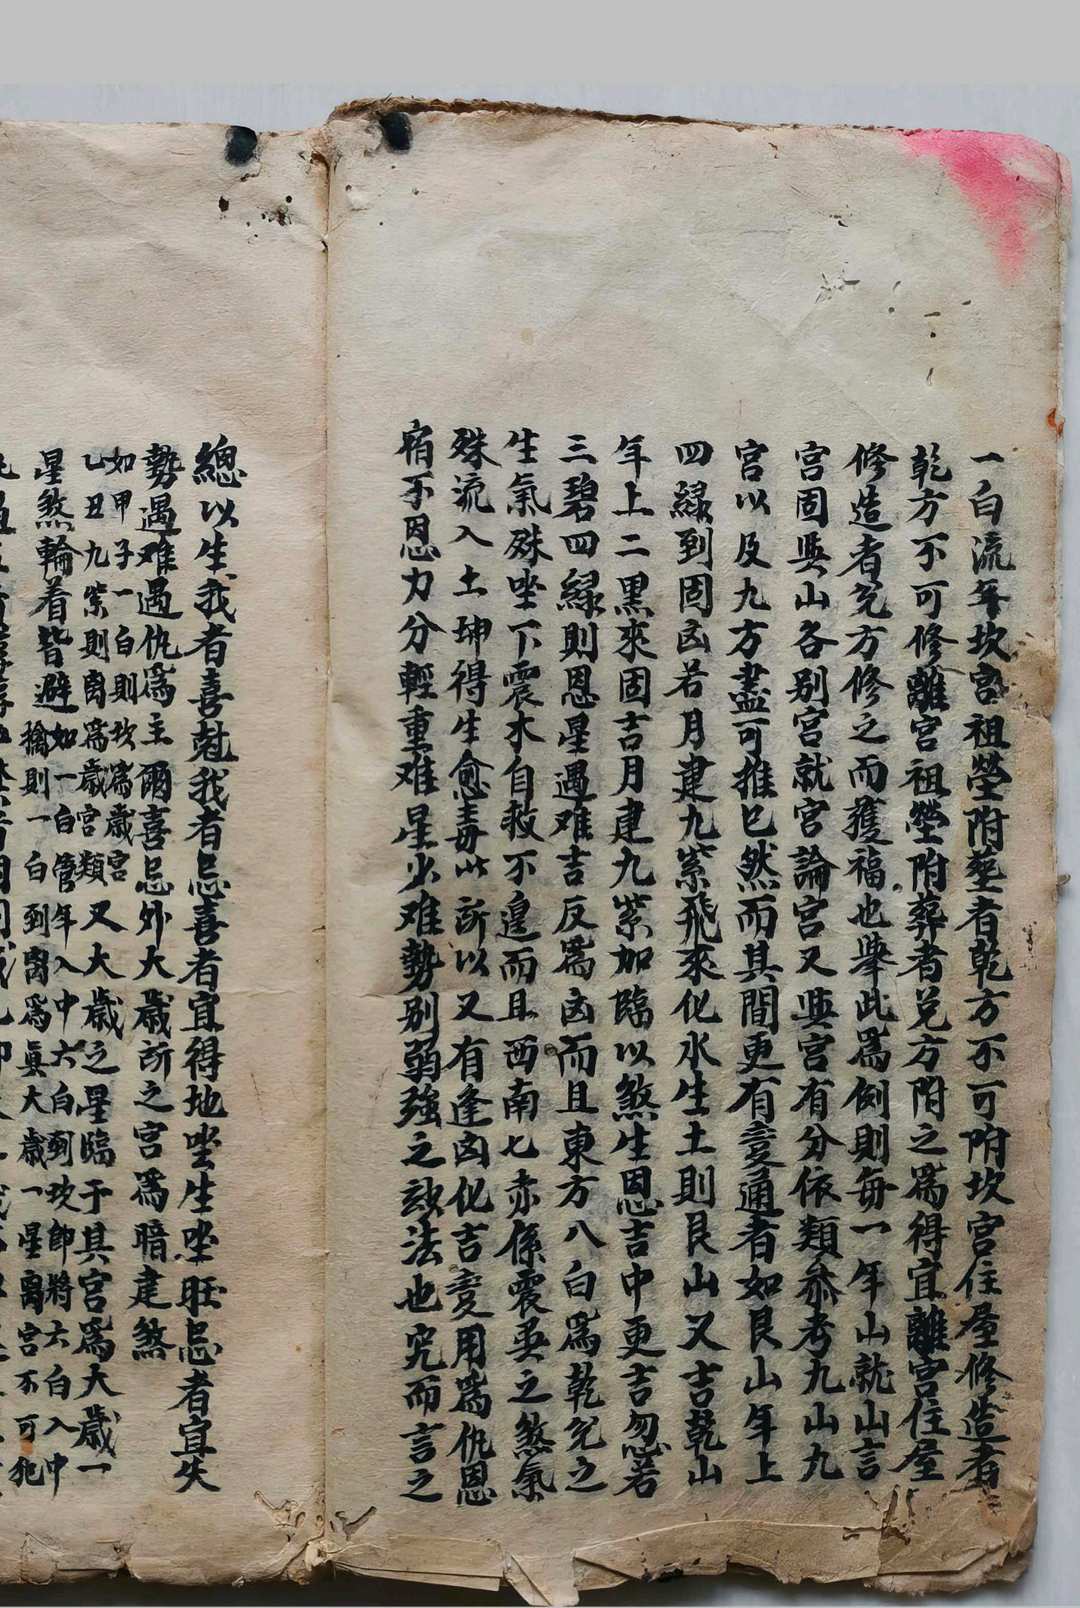 一白流年坎宮祖塋附塟者乾方不可附坎宮住屋修造者
乾方不可修離宮祖塋附葬者兑方附之爲得宜離宮住屋
修造者兑方修之而獲福也舉此爲例則每一年山就山言
宮固與山各别宮就宮論宮又與宮有分依類叅考九山九
宮以及九方盡可推已然而其間更有变通者如艮山年上
四緑到固凶若月建九紫飛來化水生土則艮山又吉乾山
年上二黑來固吉月建九紫加臨以煞生恩吉中更吉忽若
三碧四緑則恩星遇难吉反爲凶而且東方八白爲乾兑之
生氣殊坐下震水自救不遑而且西南七赤係震巽之煞氣
殊流入土坤得生愈毒此所以又有逢凶化吉变用爲仇恩
宿不恩力分輕重难星少难勢别弱強之訣法也究而言之
總以生我者喜尅我者忌喜者宜得地坐生坐旺忌者宜失
勢遇难遇仇爲主爾喜忌外大歲所之宮爲暗建煞
如甲子一白則坎爲歲宮
乙丑九紫則离爲歲宮類
又大歲之星臨于其宮爲大歲一
星煞輪着皆避
如一白管年入中六白到坎即將六白入中
擒則一白到离爲眞大歲一星离宮不可犯